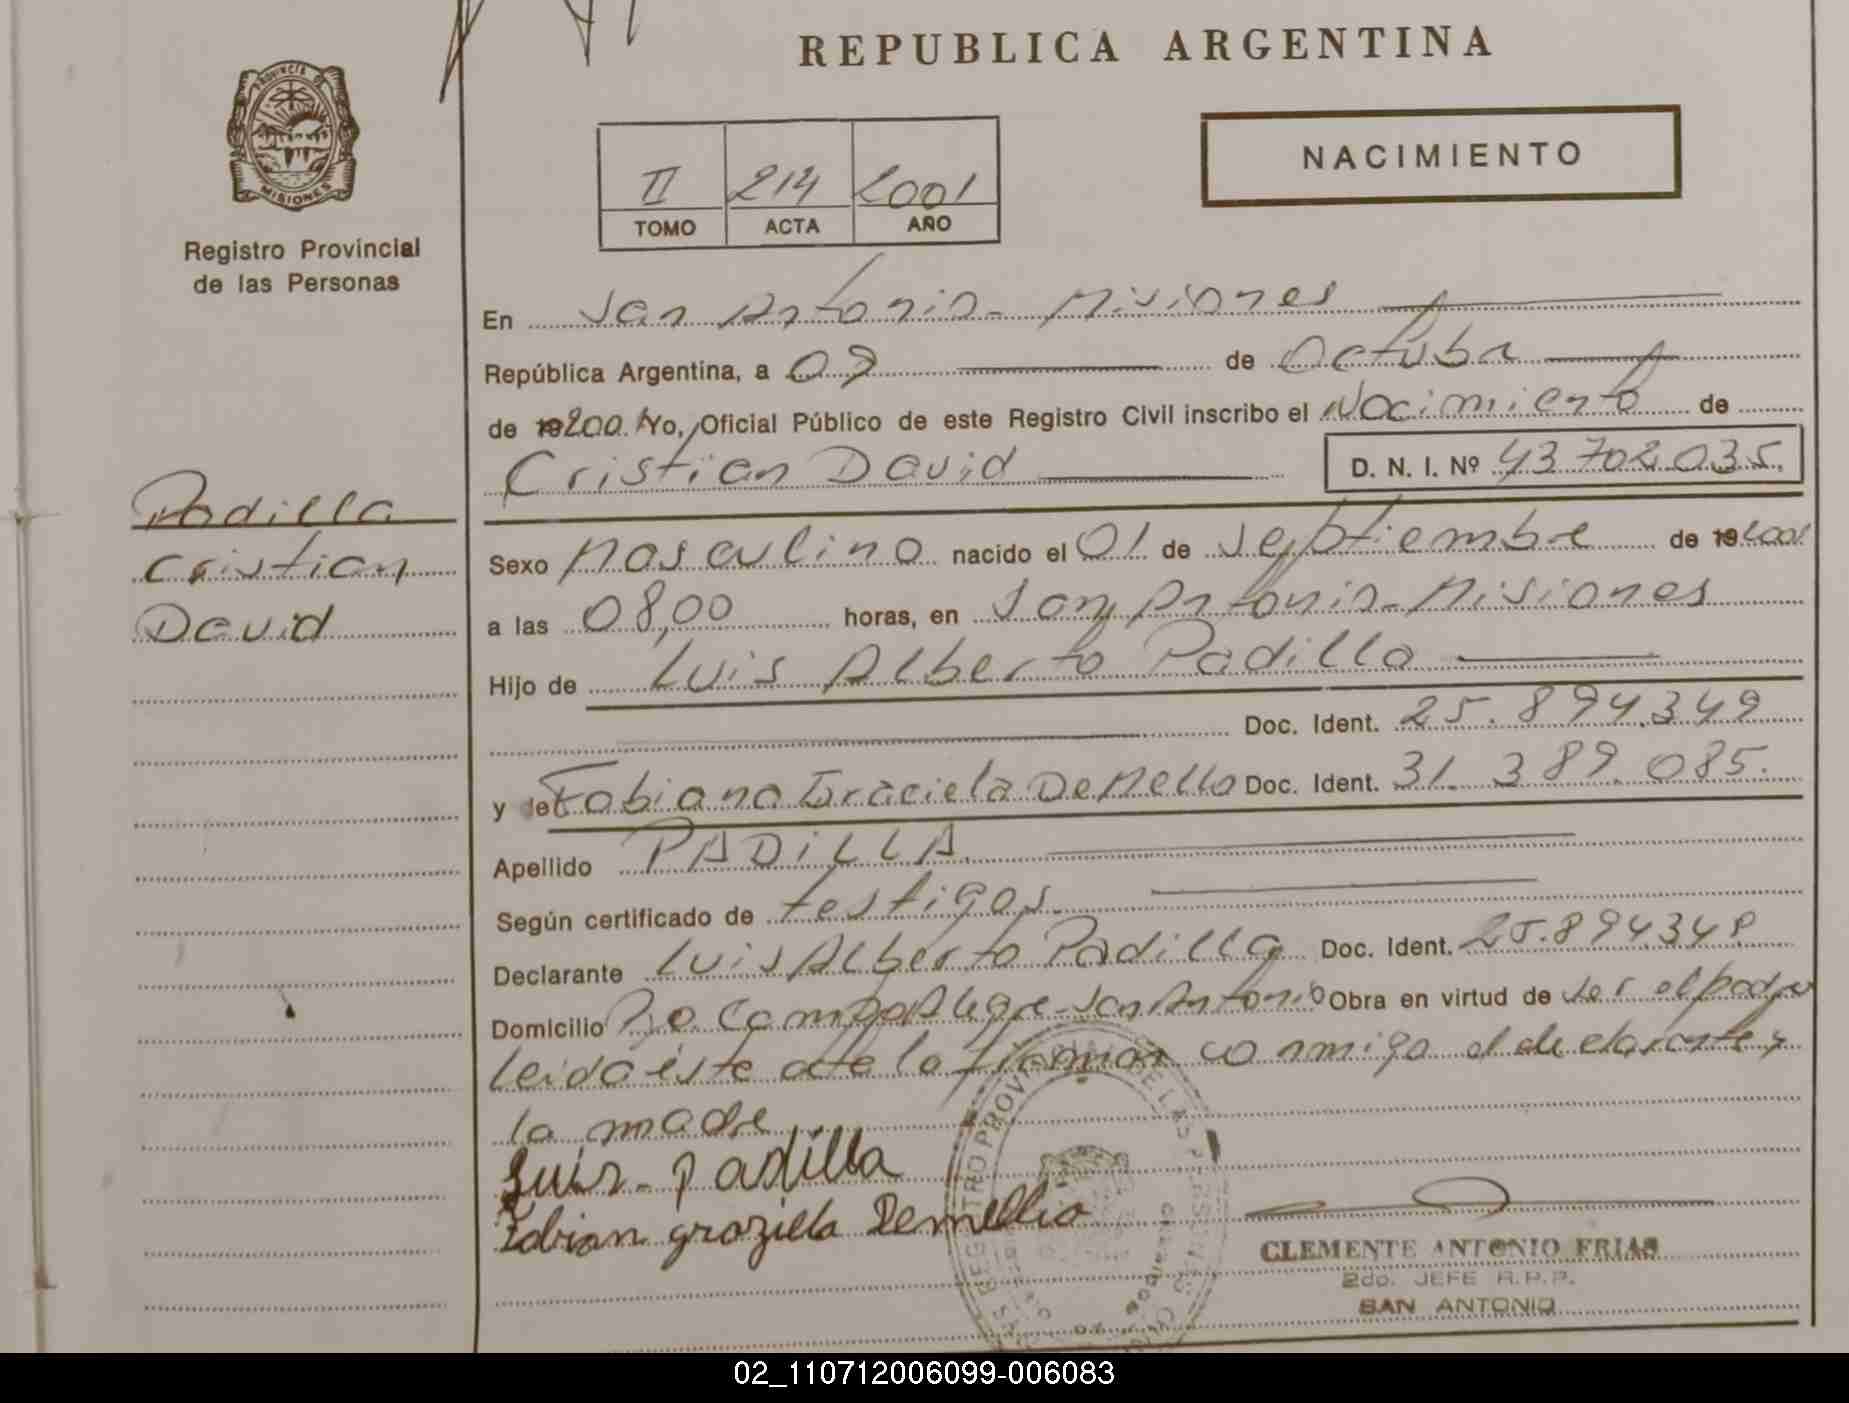 REPUBLICA ARGENTINA
PROVINCIA DE MISIONES
Registro Provincial
de las Personas
II 214 2001
TOMO ACTA AÑO
NACIMIENTO
En San Antonio - Misiones
República Argentina, a 09 de Octubre
de 192001 Yo, Oficial Público de este Registro Civil inscribo el Nacimiento de
Cristian David D. N. I. Nº 43 702 035.
Padilla
Cristian
David
Sexo Masculino nacido el 01 de Septiembre de 192001
a las 08,00 horas, en San Antonio - Misiones
Hijo de Luis Alberto Padilla
Doc. Ident. 25.894.349
y de Fabiana Graciela De Mello Doc. Ident. 31.389.085.
Apellido PADILLA
Según certificado de testigos.
Declarante Luis Alberto Padilla Doc. Ident. 25.894.349
Domicilio Campo Alegre - San Antonio Obra en virtud de ser el padre
Leida éste acta la firman conmigo el declarante y
la madre
Luis Padilla
graziela Demellio
CLEMENTE ANTONIO FRIAS
2do. JEFE R.P.P.
SAN ANTONIO
02_110712006099-006083